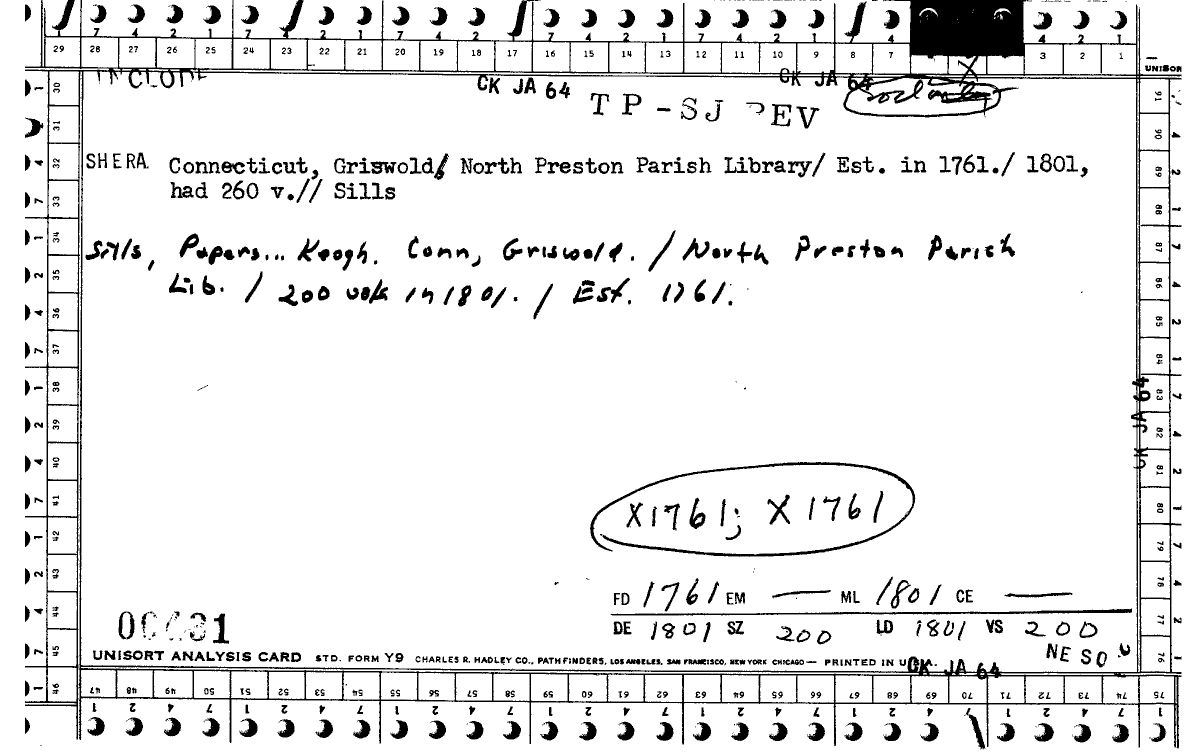 7 4 2 1 7 2 1 7 4 2 1 7 4 2 1 7 4 4 2 1
29 28 27 26 25 24 23 22 21 20 19 18 17 16 15 14 13 12 11 10 9 8 7 3 2 1
UNISOR
INCLUDE
CK JA 64
CK JA 64
TP-SJ REV
SHERA Connecticut, Griswold/ North Preston Parish Library/ Est. in 1761./ 1801,
had 260 v.// Sills
Sills, Papers... Keogh. Conn, Griswold. / North Preston Parish
Lib. / 200 vols in 1801. / Est. 1761.
X1761; X1761
FD 1761 EM — ML 1801 CE —
DE 1801 SZ 200 LD 1801 VS 200
NE SO
UNISORT ANALYSIS CARD STD. FORM Y9 CHARLES R. HADLEY CO., PATHFINDERS, LOS ANGELES, SAN FRANCISCO, NEW YORK CHICAGO — PRINTED IN U.S.A.
CK JA 64
CK JA 64
30 31 32 33 34 35 36 37 38 39 40 41 42 43 44 45 46
91 90 89 88 87 86 85 84 83 82 81 80 79 78 77 76
47 48 49 50 51 52 53 54 55 56 57 58 59 60 61 62 63 64 65 66 67 68 69 70 71 72 73 74 75